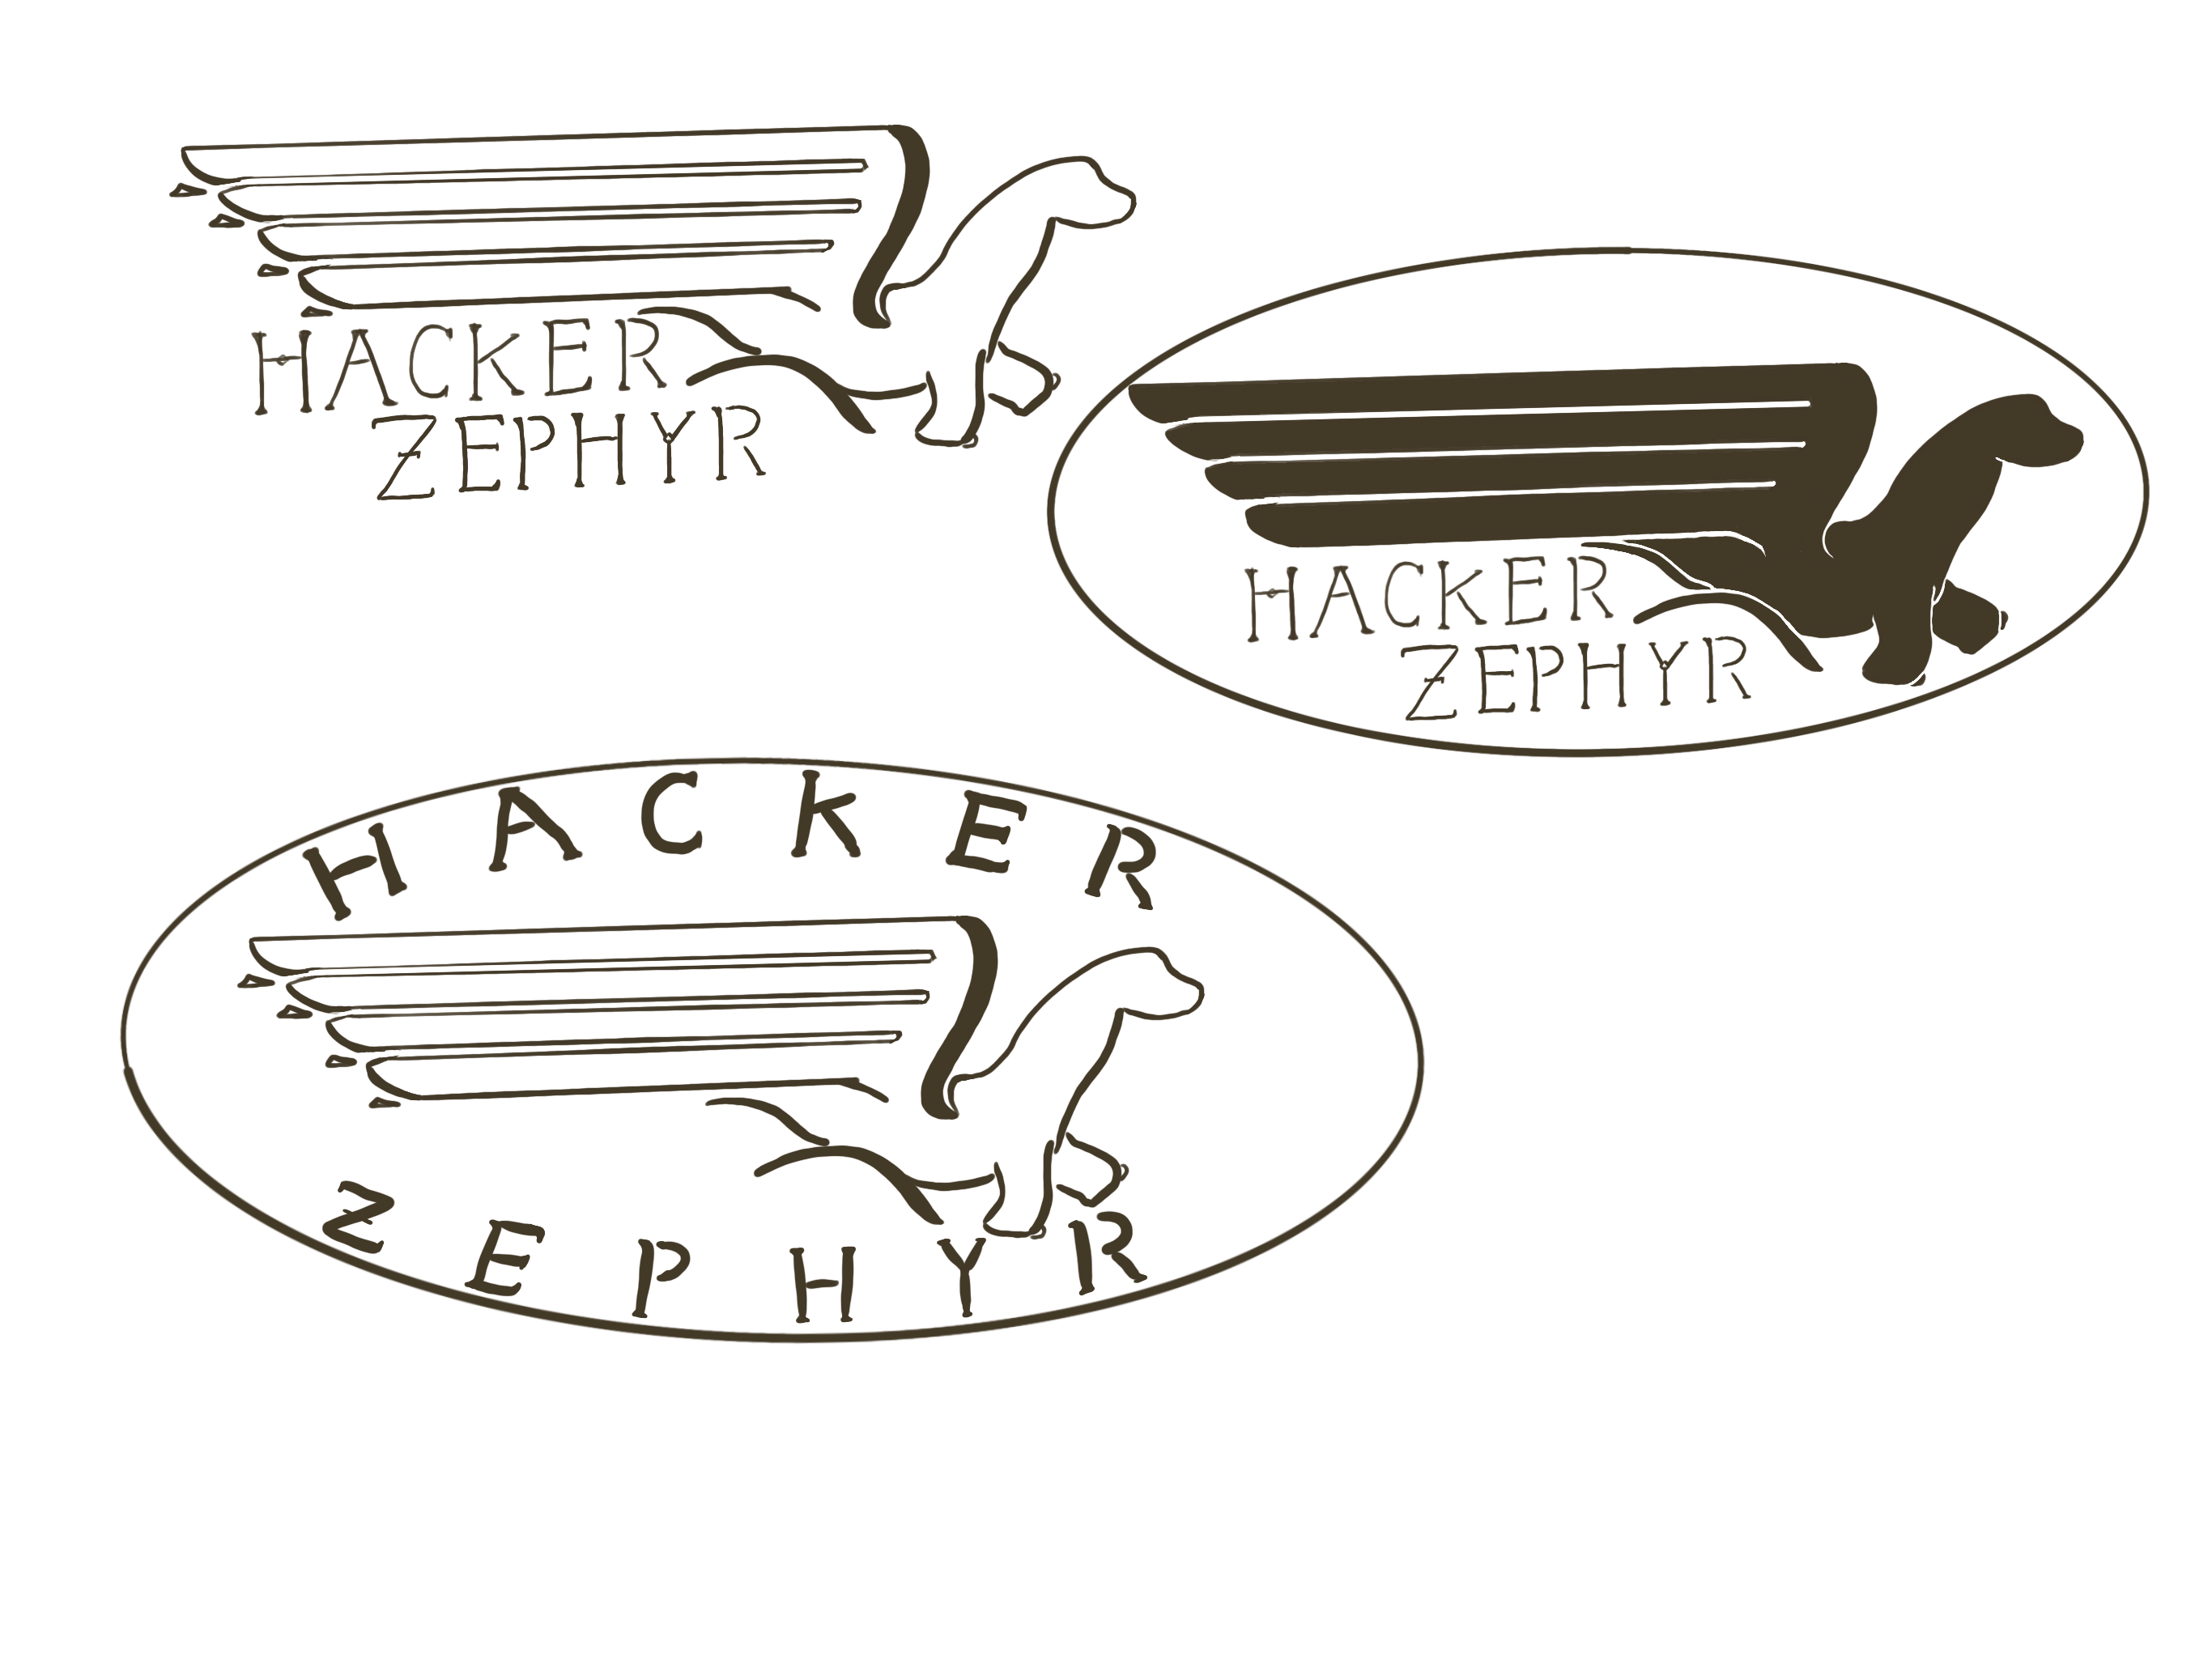 HACKER
ZEPHYR
HACKER
ZEPHYR
HACKER
ZEPHYR